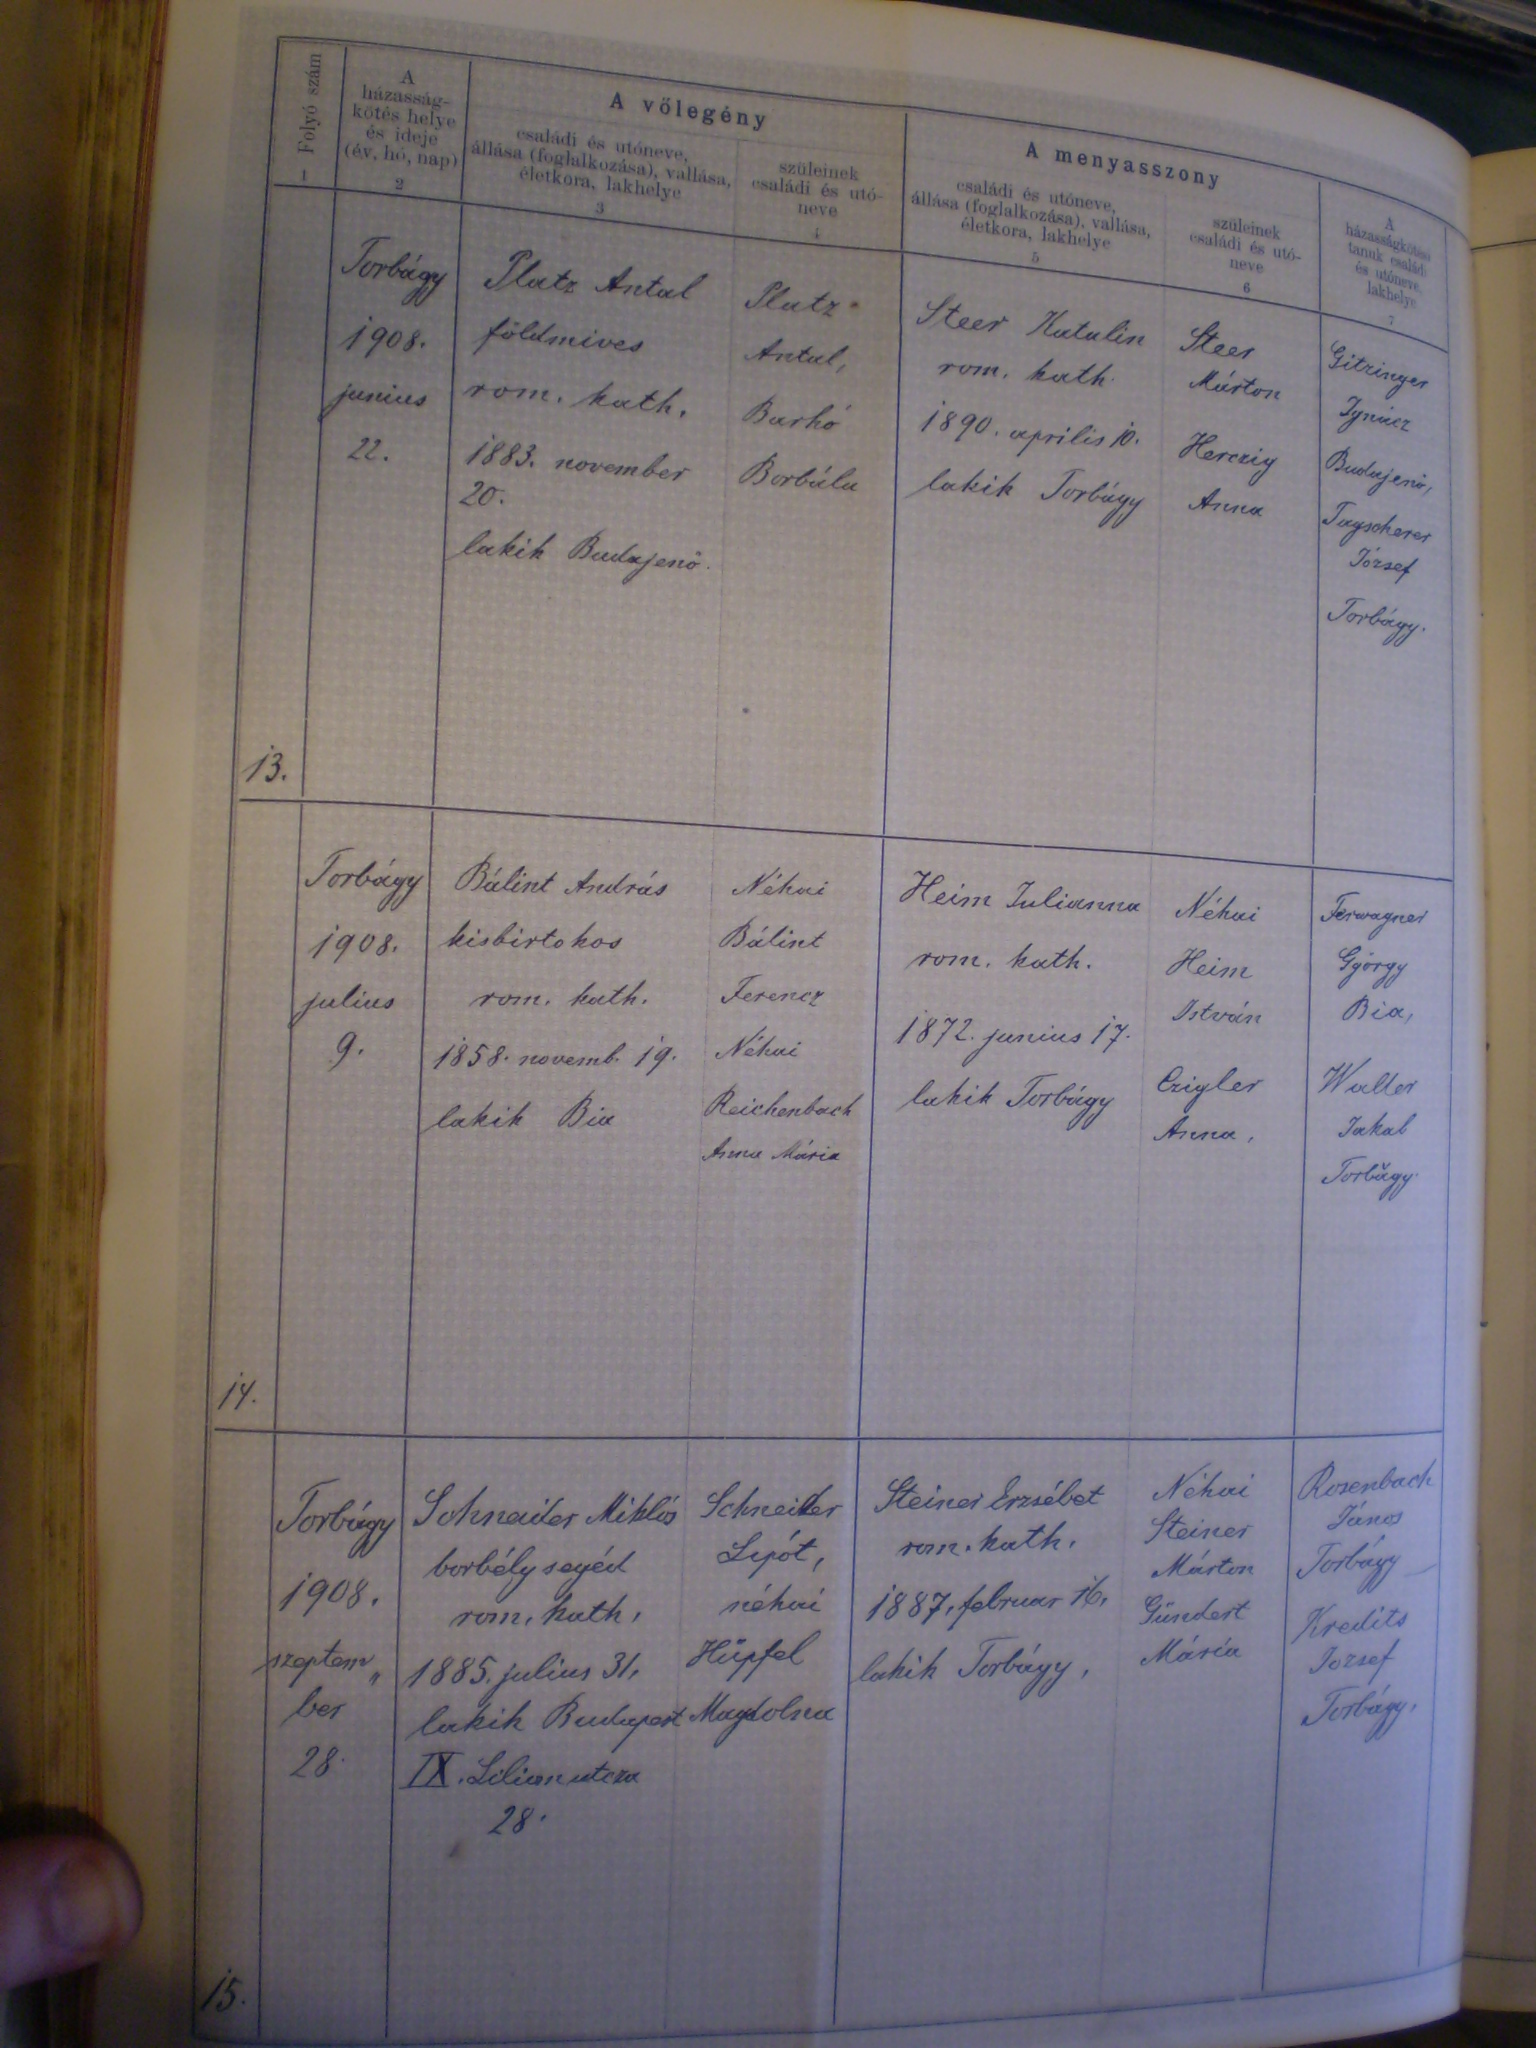 Folyó szám
1
A
házasság-
kötés helye
és ideje
(év, hó, nap)
2
A vőlegény
családi és utóneve,
állása (foglalkozása), vallása,
életkora, lakhelye
3
szüleinek
családi és utó-
neve
4
A menyasszony
családi és utóneve,
állása (foglalkozása), vallása,
életkora, lakhelye
5
szüleinek
családi és utó-
neve
6
A
házasságkötési
tanuk családi
és utóneve,
lakhelye
7
13.
Torbágy
1908.
junius
22.
Platz Antal
földmives
rom. kath.
1883. november
20.
lakik Budajenő.
Platz
Antal,
Barhó
Borbála
Steer Katalin
rom. kath.
1890. április 10.
lakik Torbágy
Steer
Márton
Herczig
Anna
Gitzinger
Ignácz
Budajenő,
Tagscherer
József
Torbágy.
14.
Torbágy
1908.
julius
9.
Bálint András
kisbirtokos
rom. kath.
1858. novemb. 19.
lakik Bia
Néhai
Bálint
Ferencz
Néhai
Reichenbach
Anna Mária
Heim Julianna
rom. kath.
1872. junius 17.
lakik Torbágy
Néhai
Heim
István
Czigler
Anna,
Ferwagner
György
Bia,
Walter
Jakab
Torbágy.
15.
Torbágy
1908.
szeptem„
ber
28.
Schneider Miklós
borbély segéd
rom. kath,
1885. julius 31,
lakik Budapest
IX. Lilian utcza
28.
Schneider
Lipót,
néhai
Hüpfel
Magdolna
Steiner Erzsébet
rom. kath,
1887, februar 16,
lakik Torbágy,
Néhai
Steiner
Márton
Gündert
Mária
Rosenbach
János
Torbágy
Kredits
Jozsef
Torbágy,